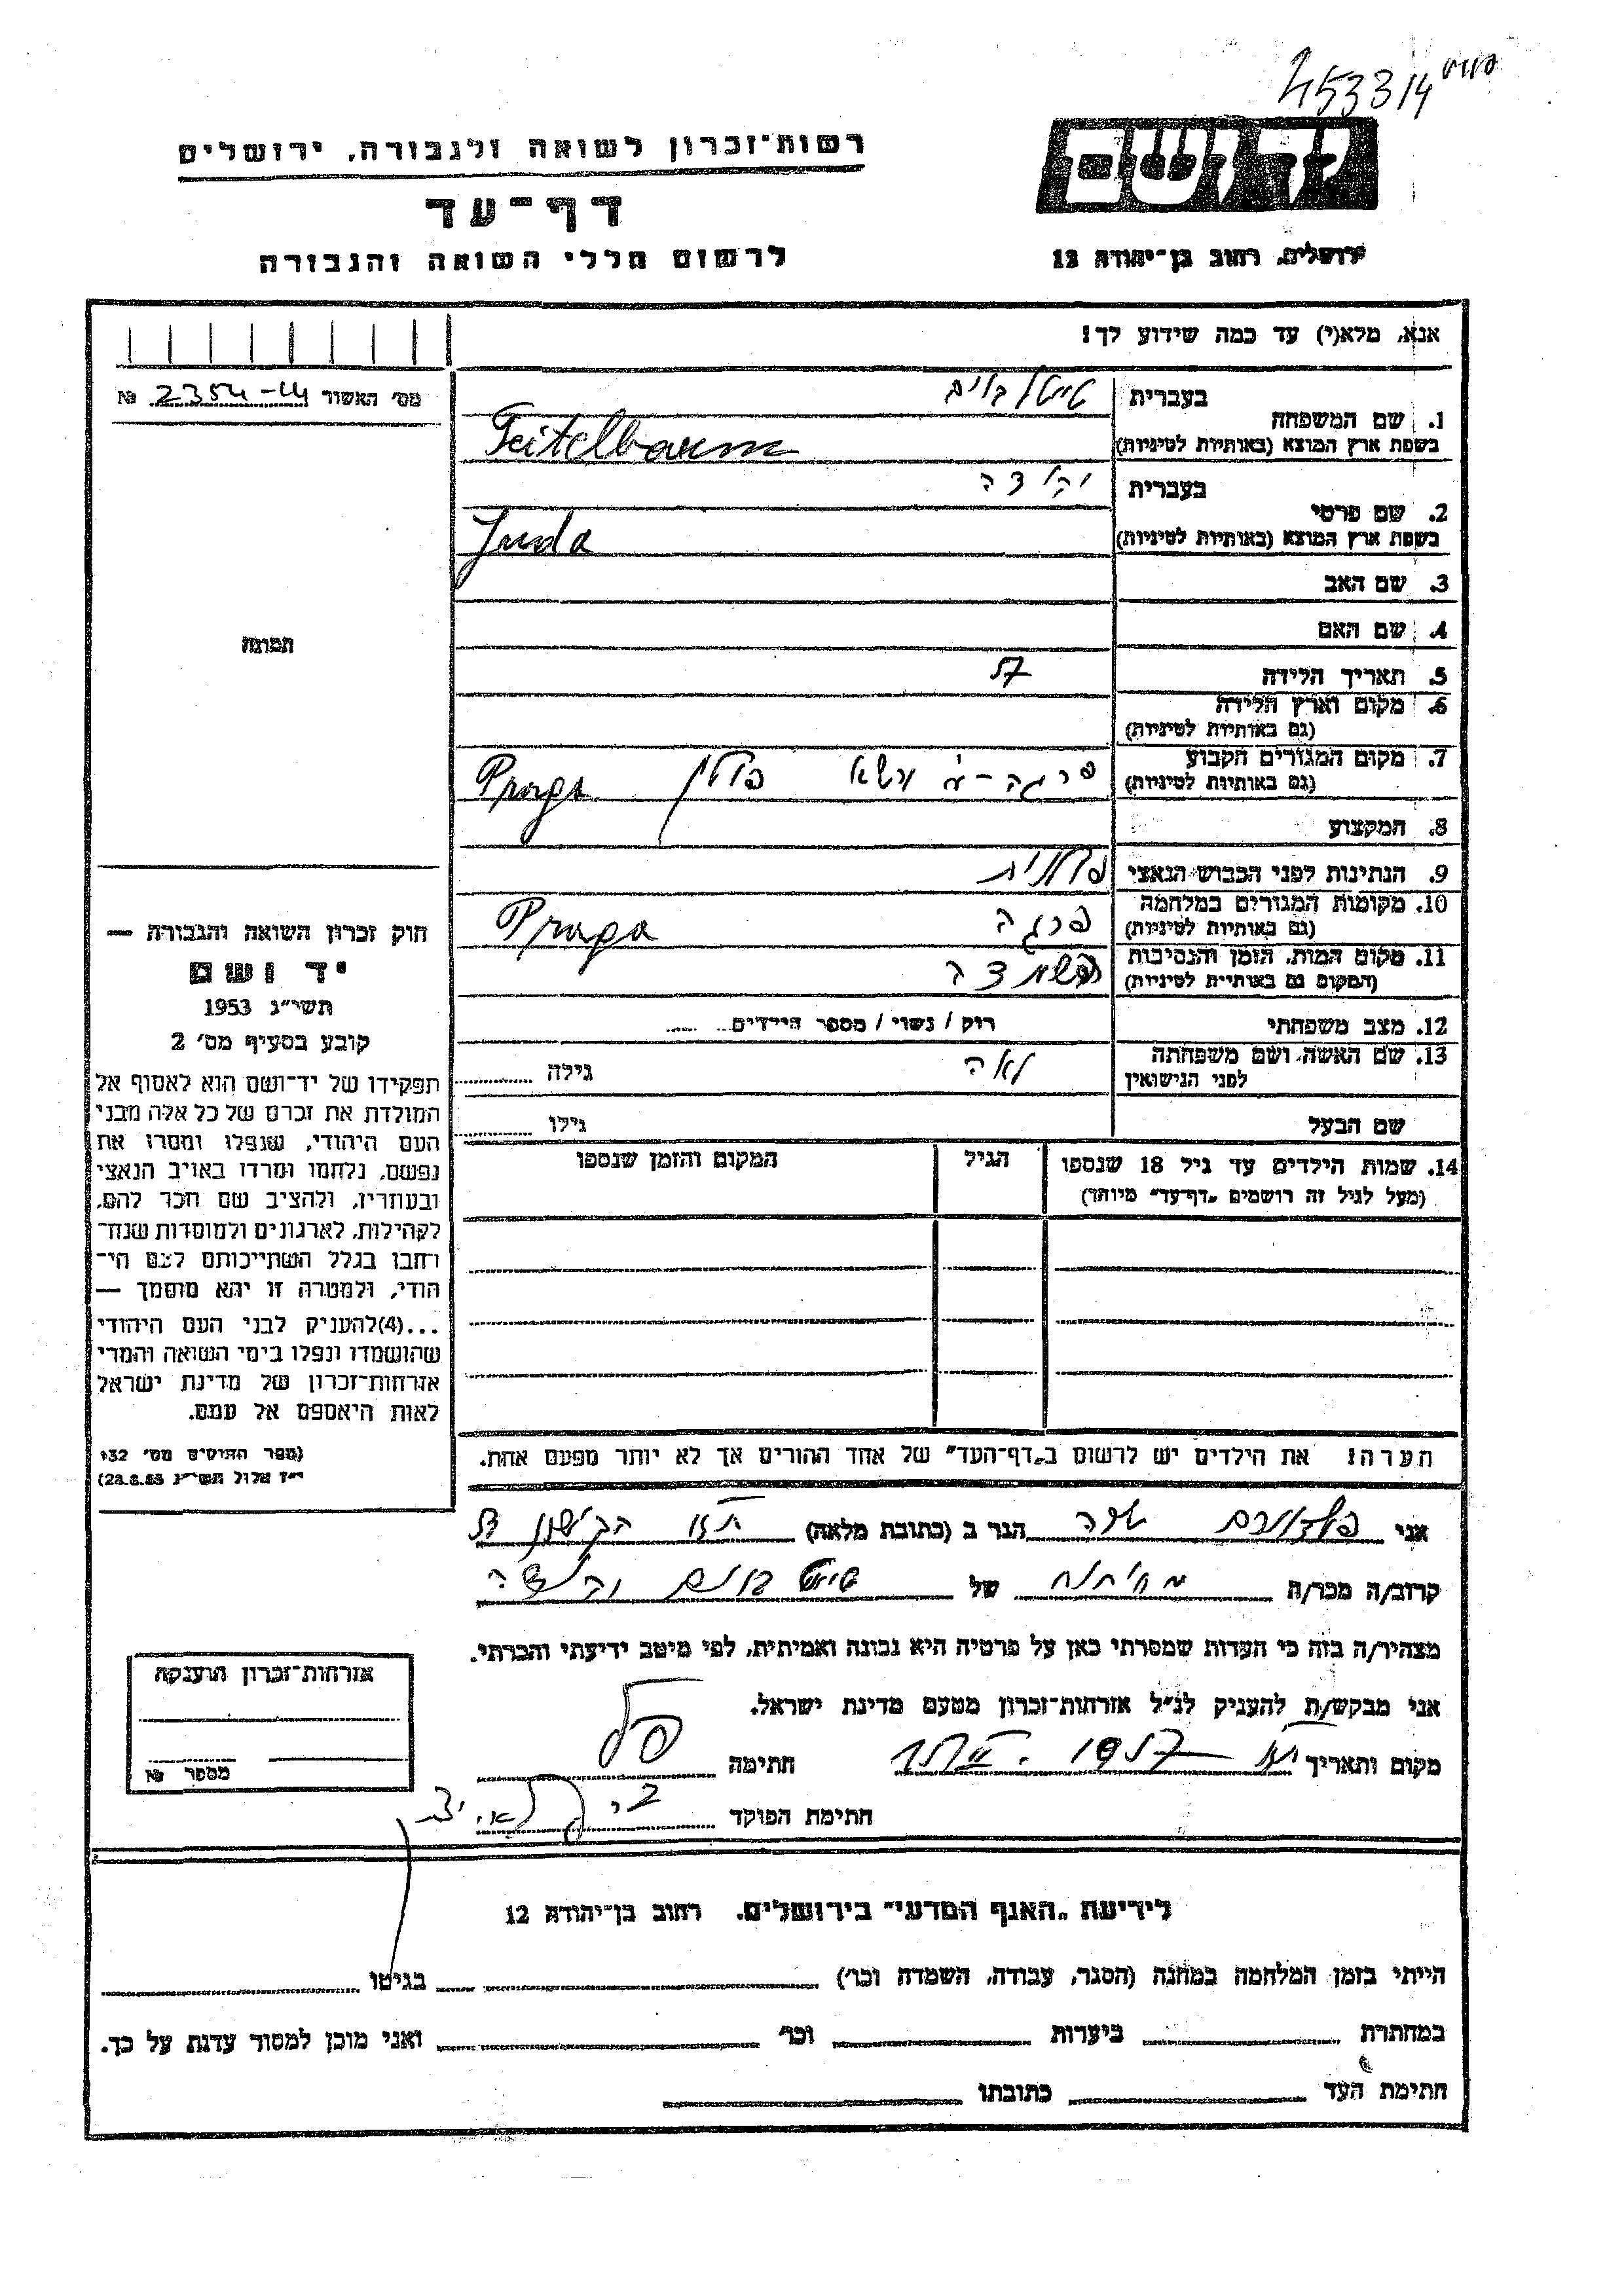 453314
רשות־זכרון לשואה ולגבורה, ירושלים
יד ושם
דף־עד
לרשום חללי השואה והגבורה
ירושלים, רחוב בן־יהודה 12
אנא, מלא(י) עד כמה שידוע לך!
מס׳ האשור № 2354-44
1. שם המשפחה בעברית טייטלבוים
בשפת ארץ המוצא (באותיות לטיניות) Teitelbaum
2. שם פרטי בעברית יהודה
בשפת ארץ המוצא (באותיות לטיניות) Juda
3. שם האב
4. שם האם
תמונה
5. תאריך הלידה 57
6. מקום וארץ הלידה
(גם באותיות לטיניות)
7. מקום המגורים הקבוע פרגה - ורשא פולין Praga
(גם באותיות לטיניות)
8. המקצוע
9. הנתינות לפני הכבוש הנאצי פולנית
10. מקומות המגורים במלחמה פרגה Praga
(גם באותיות לטיניות)
11. מקום המות, הזמן והנסיבות
(המקום גם באותיות לטיניות)
12. מצב משפחתי רווק / נשוי / מספר הילדים
13. שם האשה ושם משפחתה לאה גילה
לפני הנישואין
שם הבעל גילו
14. שמות הילדים עד גיל 18 שנספו הגיל המקום והזמן שנספו
(מעל לגיל זה רושמים "דף־עד" מיוחד)
חוק זכרון השואה והגבורה —
יד ושם
תשי״ג 1953
קובע בסעיף מס׳ 2
תפקידו של יד־ושם הוא לאסוף אל
המולדת את זכרם של כל אלה מבני
העם היהודי, שנפלו ומסרו את
נפשם, נלחמו ומרדו באויב הנאצי
ובעוזריו, ולהציב שם וזכר להם,
לקהילות, לארגונים ולמוסדות שנח־
רבו בגלל השתייכותם לעם הי־
הודי, ולמטרה זו יהא מוסמך —
...(4)להעניק לבני העם היהודי
שהושמדו ונפלו בימי השואה והמרי
אזרחות־זכרון של מדינת ישראל
לאות היאספם אל עמם.
(ספר החוקים מס׳ 132
י״ז אלול תשי״ג 28.8.53)
הערה! את הילדים יש לרשום ב"דף־העד" של אחד ההורים אך לא יותר מפעם אחת.
אני שרה הגר ב (כתובת מלאה)
קרוב/ה מכר/ה של טייטלבוים יהודה
מצהיר/ה בזה כי העדות שמסרתי כאן על פרטיה היא נכונה ואמיתית, לפי מיטב ידיעתי והכרתי.
אני מבקש/ת להעניק לנ״ל אזרחות־זכרון מטעם מדינת ישראל.
מקום ותאריך 1957 חתימה
חתימת הפוקד
אזרחות־זכרון הוענקה
מספר №
לידיעת "האגף המדעי" בירושלים, רחוב בן־יהודה 12
הייתי בזמן המלחמה במחנה (הסגר, עבודה, השמדה וכו׳) בגיטו
במחתרת ביערות וכו׳ ואני מוכן למסור עדות על כך.
חתימת העד כתובתו